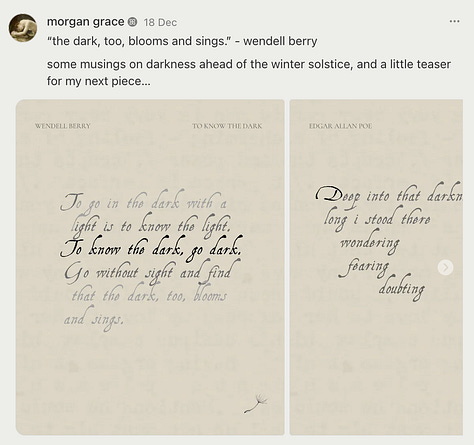 morgan grace 18 Dec
“the dark, too, blooms and sings.” - wendell berry
some musings on darkness ahead of the winter solstice, and a little teaser
for my next piece...
WENDELL BERRY
TO KNOW THE DARK
To go in the dark with a
light is to know the light.
To know the dark, go dark.
Go without sight and find
that the dark, too, blooms
and sings.
EDGAR ALLAN POE
Deep into that darkn
long i stood there
wondering
fearing
doubting